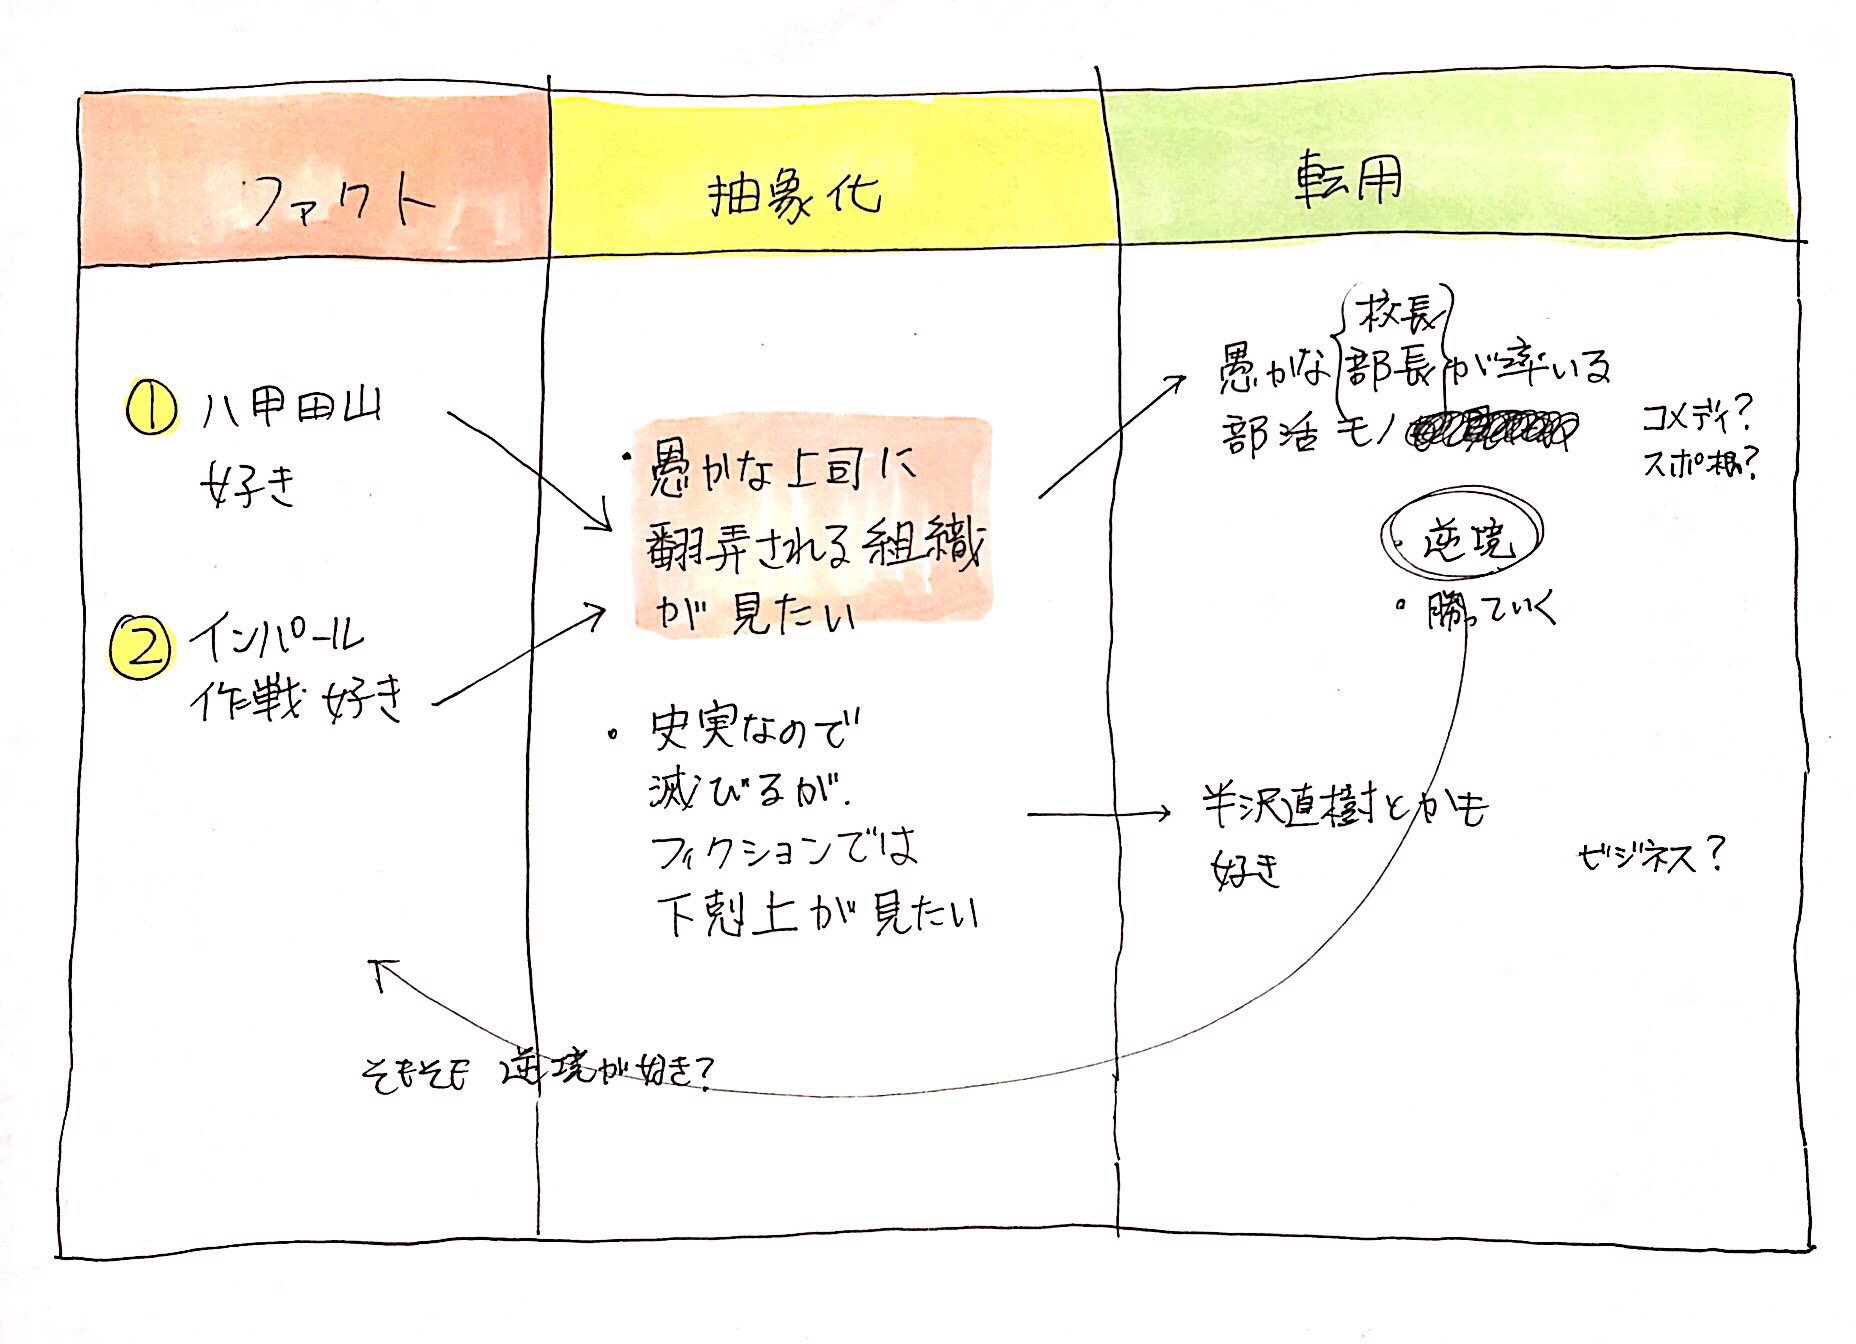 ファクト
抽象化
転用
① 八甲田山
好き
② インパール
作戦 好き
・愚かな上司に
翻弄される組織
が見たい
・史実なので
滅びるが.
フィクションでは
下剋上が見たい
校長
愚かな 部長 が率いる
部活モノ
コメディ?
スポ根?
・逆境
・勝っていく
半沢直樹とかも
好き
ビジネス?
そもそも 逆境が好き?